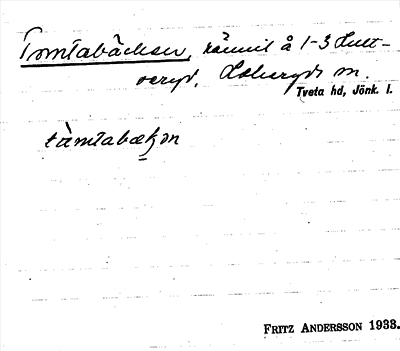 Tomtabäcken, rännil å 1-3 Hult-
seryd, Lekeryds sn.
Tveta hd, Jönk. l.
tùmtabækən
FRITZ ANDERSSON 1933.